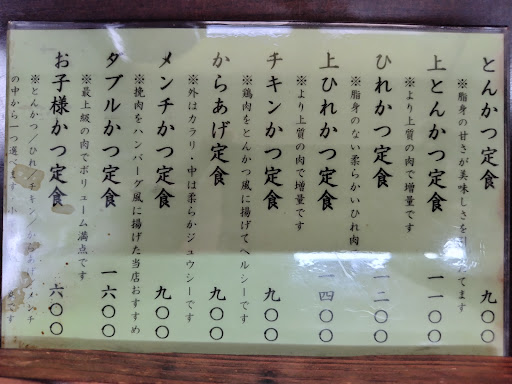 とんかつ定食 九〇〇
※脂身の甘さが美味しさを引き立てます
上とんかつ定食 一一〇〇
※より上質の肉で増量です
ひれかつ定食 一二〇〇
※脂身のない柔らかいひれ肉で
上ひれかつ定食 一四〇〇
※より上質の肉で増量です
チキンかつ定食 九〇〇
※鶏肉をとんかつ風に揚げてヘルシーです
からあげ定食 九〇〇
※外はカラリ・中は柔らかジュウシーです
メンチかつ定食 九〇〇
※挽肉をハンバーグ風に揚げた当店おすすめ
ダブルかつ定食 一六〇〇
※最上級の肉でボリューム満点です
お子様かつ定食 六〇〇
※とんかつ/ひれ/チキン/からあげ/メンチ
の中から一つ選べます